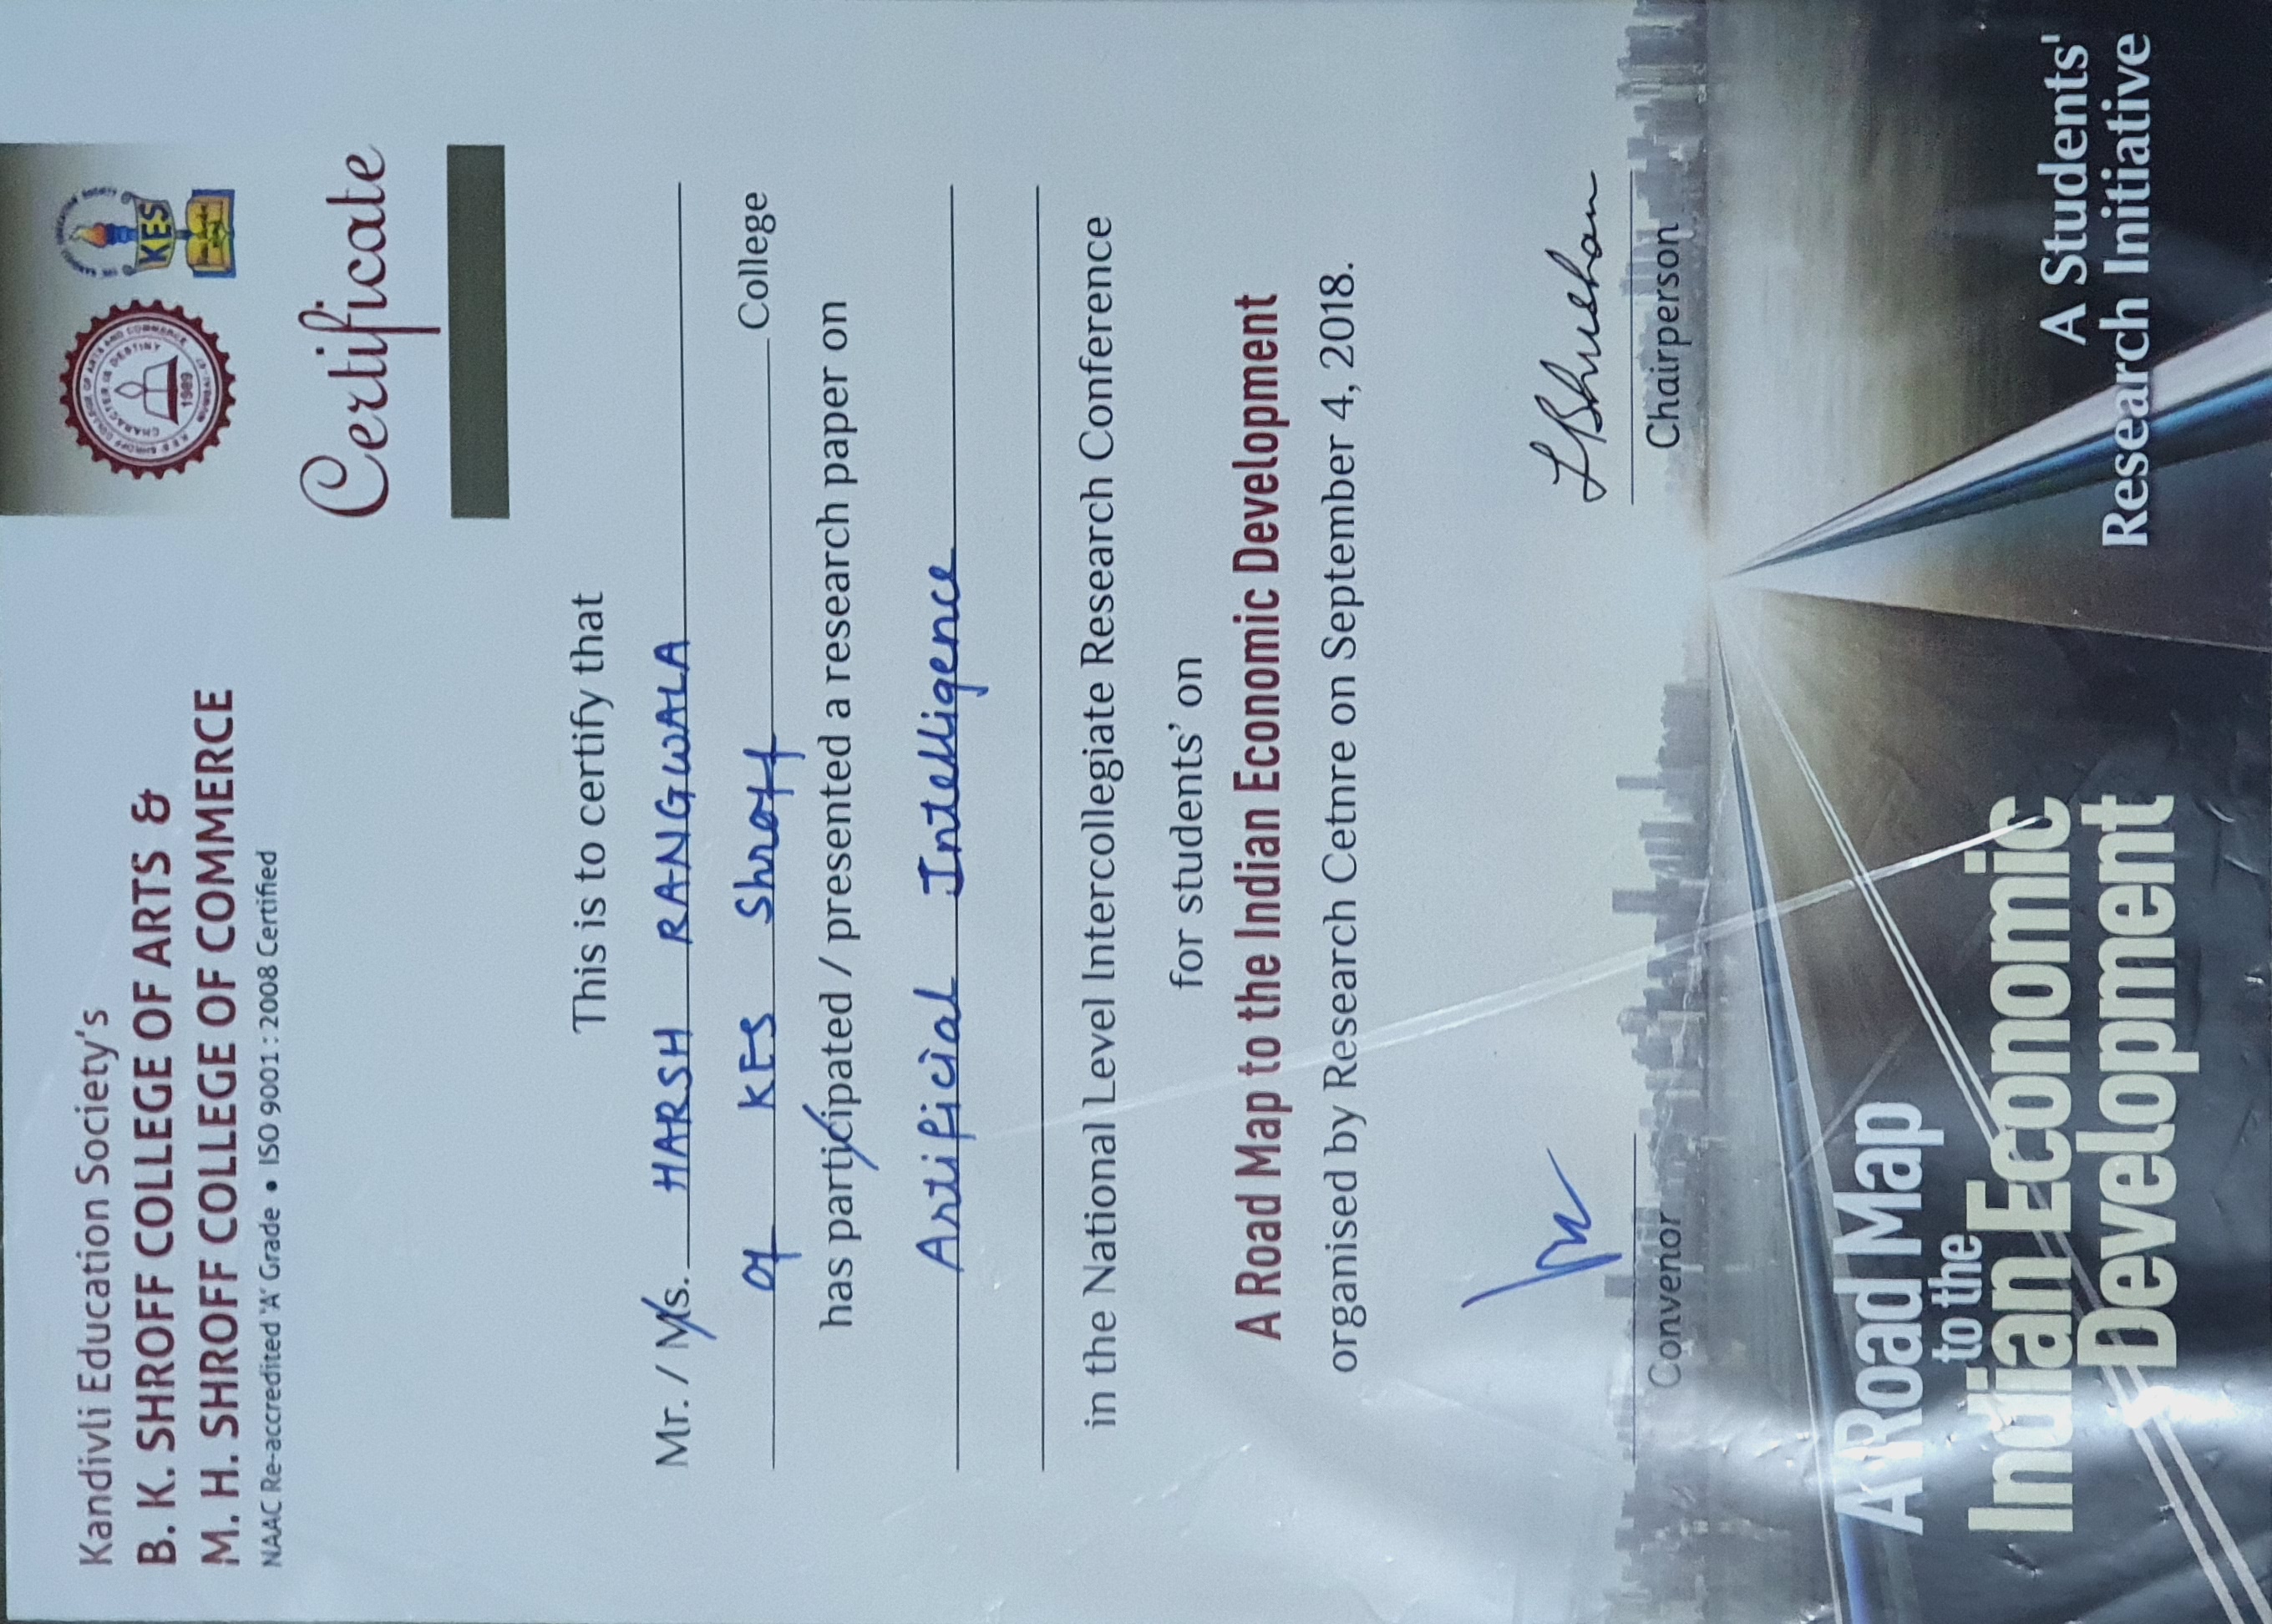 Kandivli Education Society's
B. K. SHROFF COLLEGE OF ARTS &
M. H. SHROFF COLLEGE OF COMMERCE
NAAC Re-accredited 'A' Grade • ISO 9001 : 2008 Certified
CHARACTER IS DESTINY
1989
MUMBAI-67
KES
Certificate
This is to certify that
Mr. / Ms. HARSH RANGWALA
of KES Shroff College
has participated / presented a research paper on
Artificial Intelligence
in the National Level Intercollegiate Research Conference
for students' on
A Road Map to the Indian Economic Development
organised by Research Cetnre on September 4, 2018.
LBhushan
Convenor Chairperson
A Road Map
to the
Indian Economic
Development
A Students'
Research Initiative